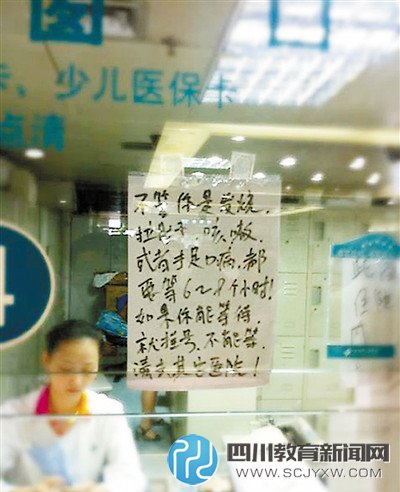 卡、少儿医保卡
点清
不管你是发烧、
拉肚子、咳嗽、
或者手足口病,都
要等6~8个小时!
如果你能等待,
就挂号,不能等,
请去其它医院!
4
四川教育新闻网
WWW.SCJYXW.COM